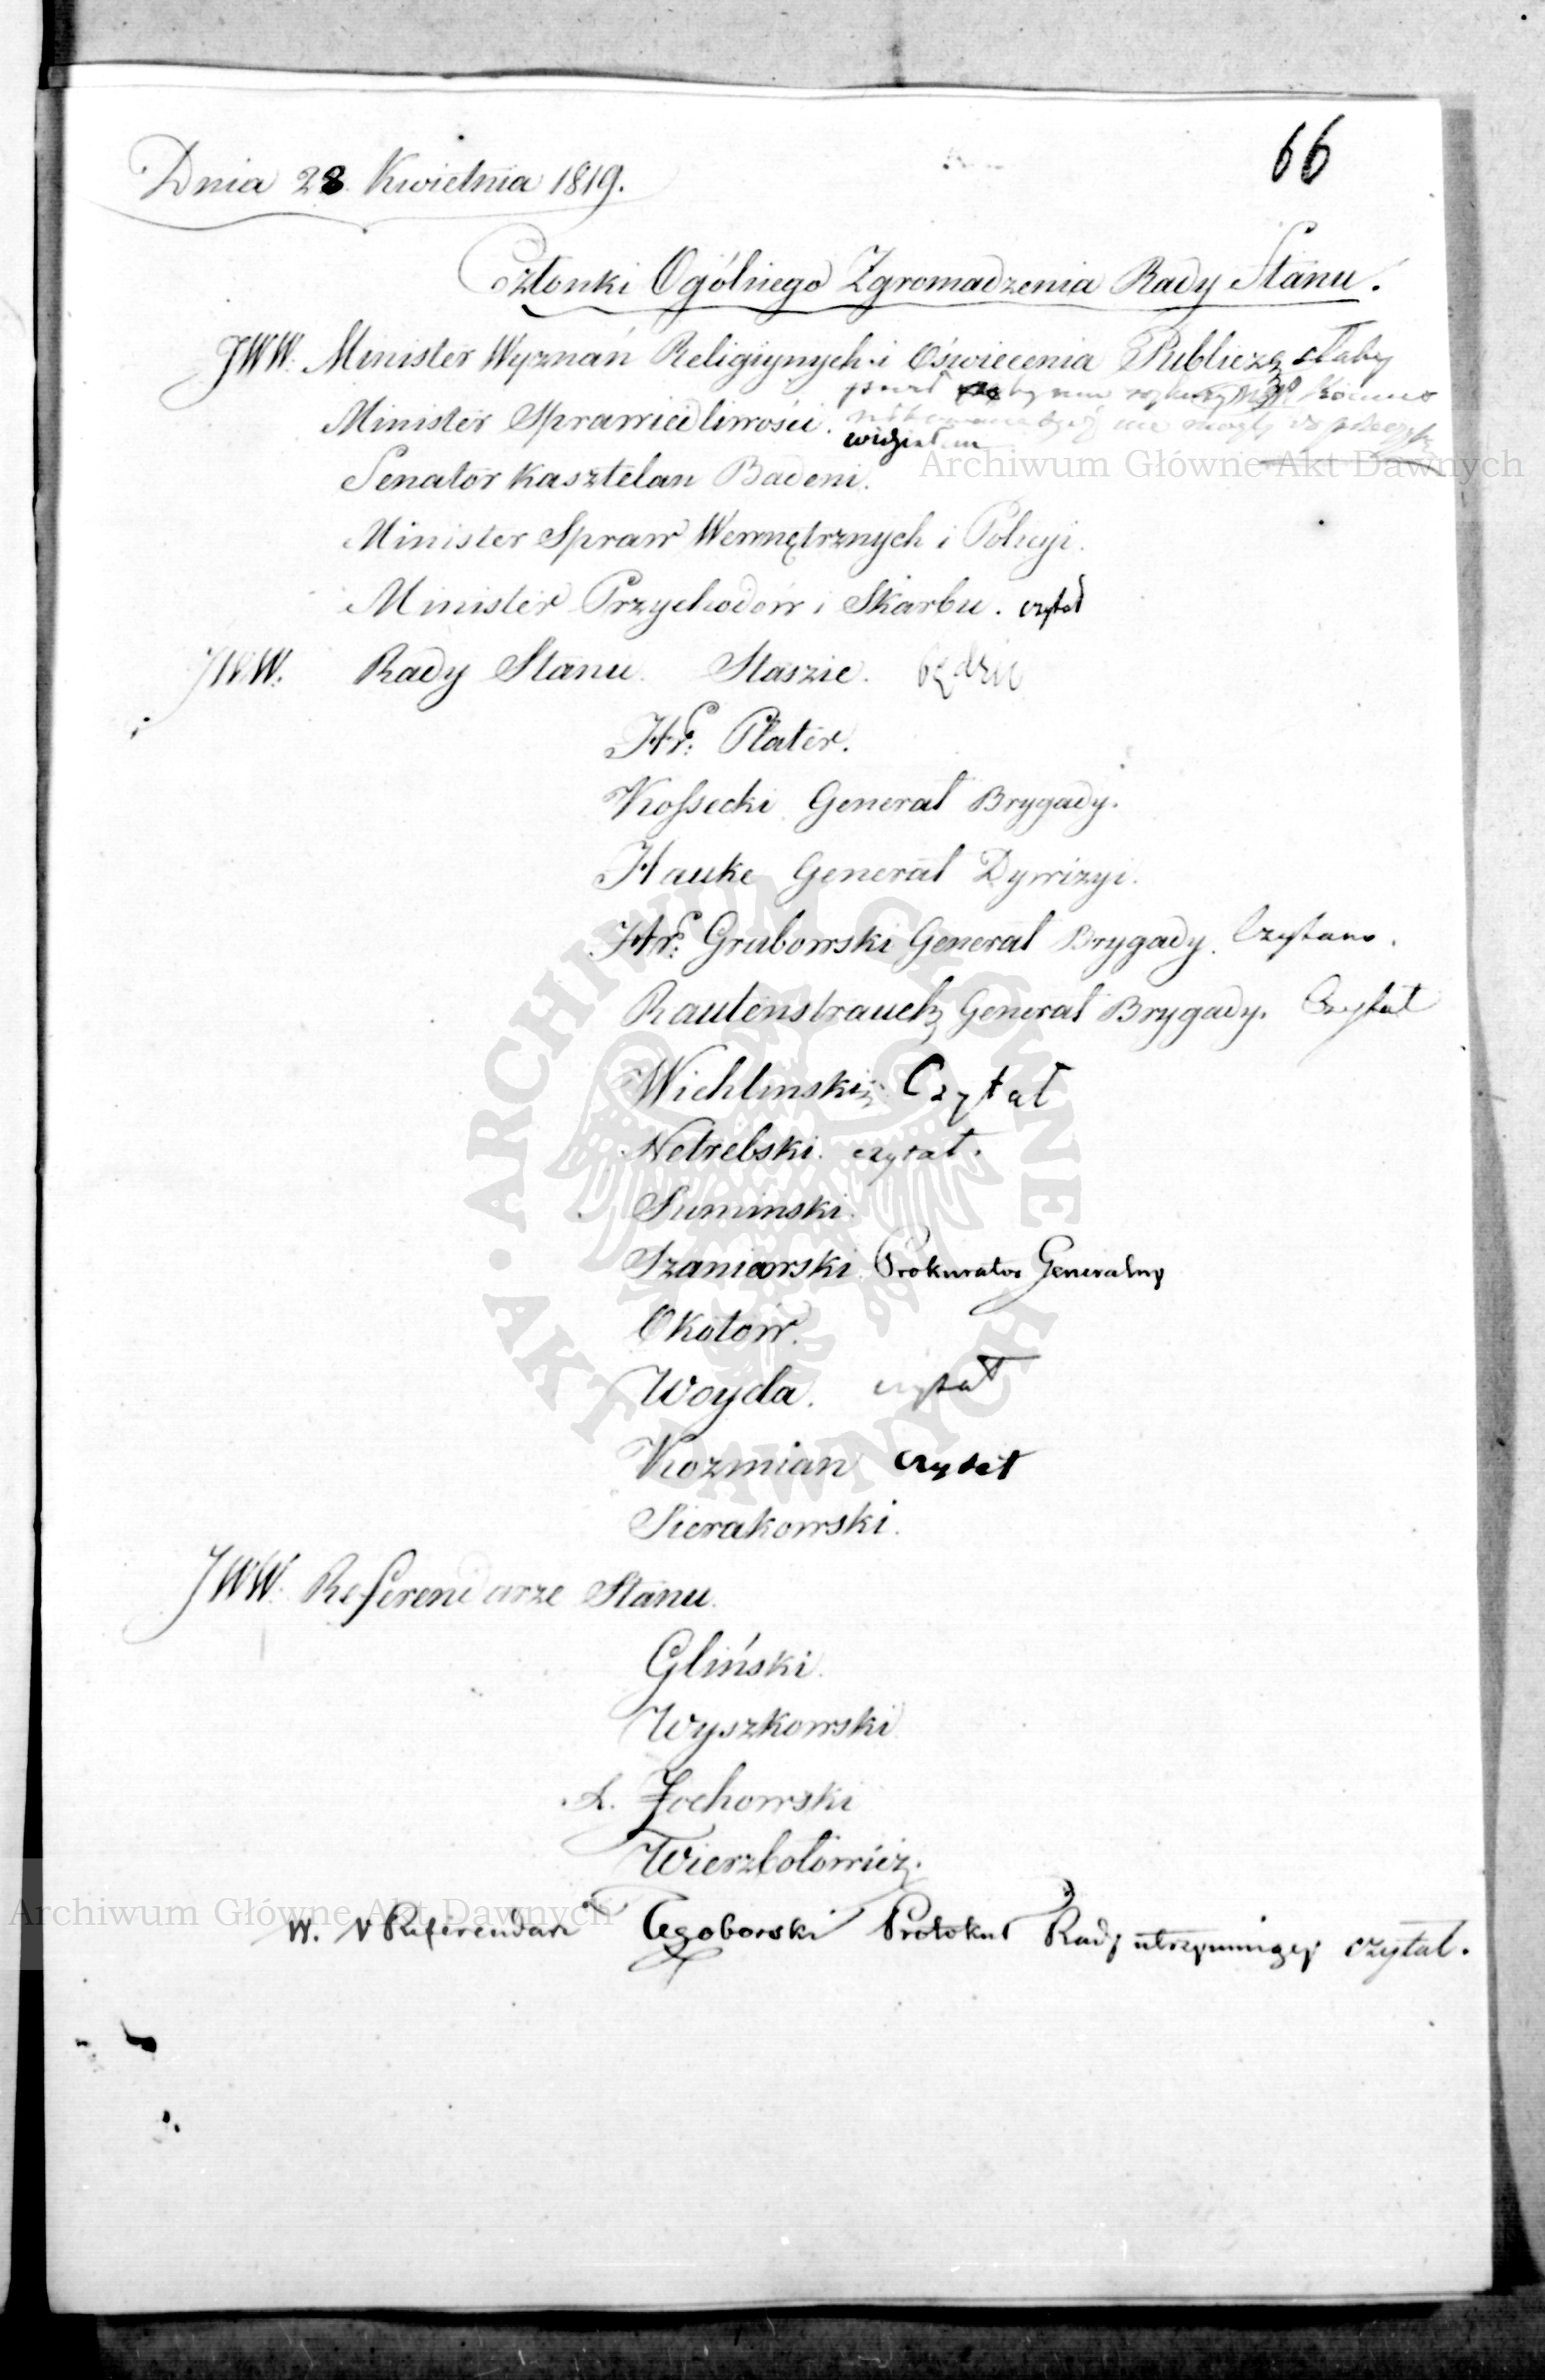 66
Dnia 28 Kwietnia 1819.
Członki Ogólnego Zgromadzenia Rady Stanu.
JWW. Minister Wyznań Religiynych i Oświecenia Publicz. słaby
Minister Sprawiedliwości. widziałem
Senator Kasztelan Badeni.
Minister Spraw Wewnętrznych i Policyi.
Minister Przychodów i Skarbu. czytał
JWW. Rady Stanu. Staszic. będzie
Hr. Plater.
Kossecki Generał Brygady.
Hauke Generał Dywizyi.
Hr. Grabowski Generał Brygady. Czytano.
Rautenstrauch Generał Brygady. Czytał
Wichlinski Czytał
Netrebski. czytał.
Suminski.
Szaniawski. Prokurator Generalny
Okołow.
Woyda. czytał
Kozmian czytał
Sierakowski.
JWW. Referendarze Stanu.
Gliński.
Wyszkowski
A. Żochowski
Wierzbołowicz.
W. V Referendarz Tęgoborski Protokuł Rady utrzymuiący czytał.
ARCHIWUM GŁÓWNE
AKT DAWNYCH
Archiwum Główne Akt Dawnych
Archiwum Główne Akt Dawnych